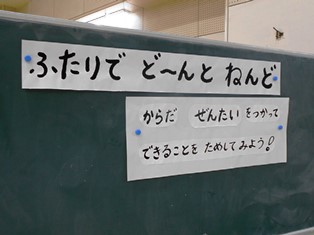 ふたりで ど〜んと ねんど
からだ ぜんたい をつかって
できることを ためしてみよう!